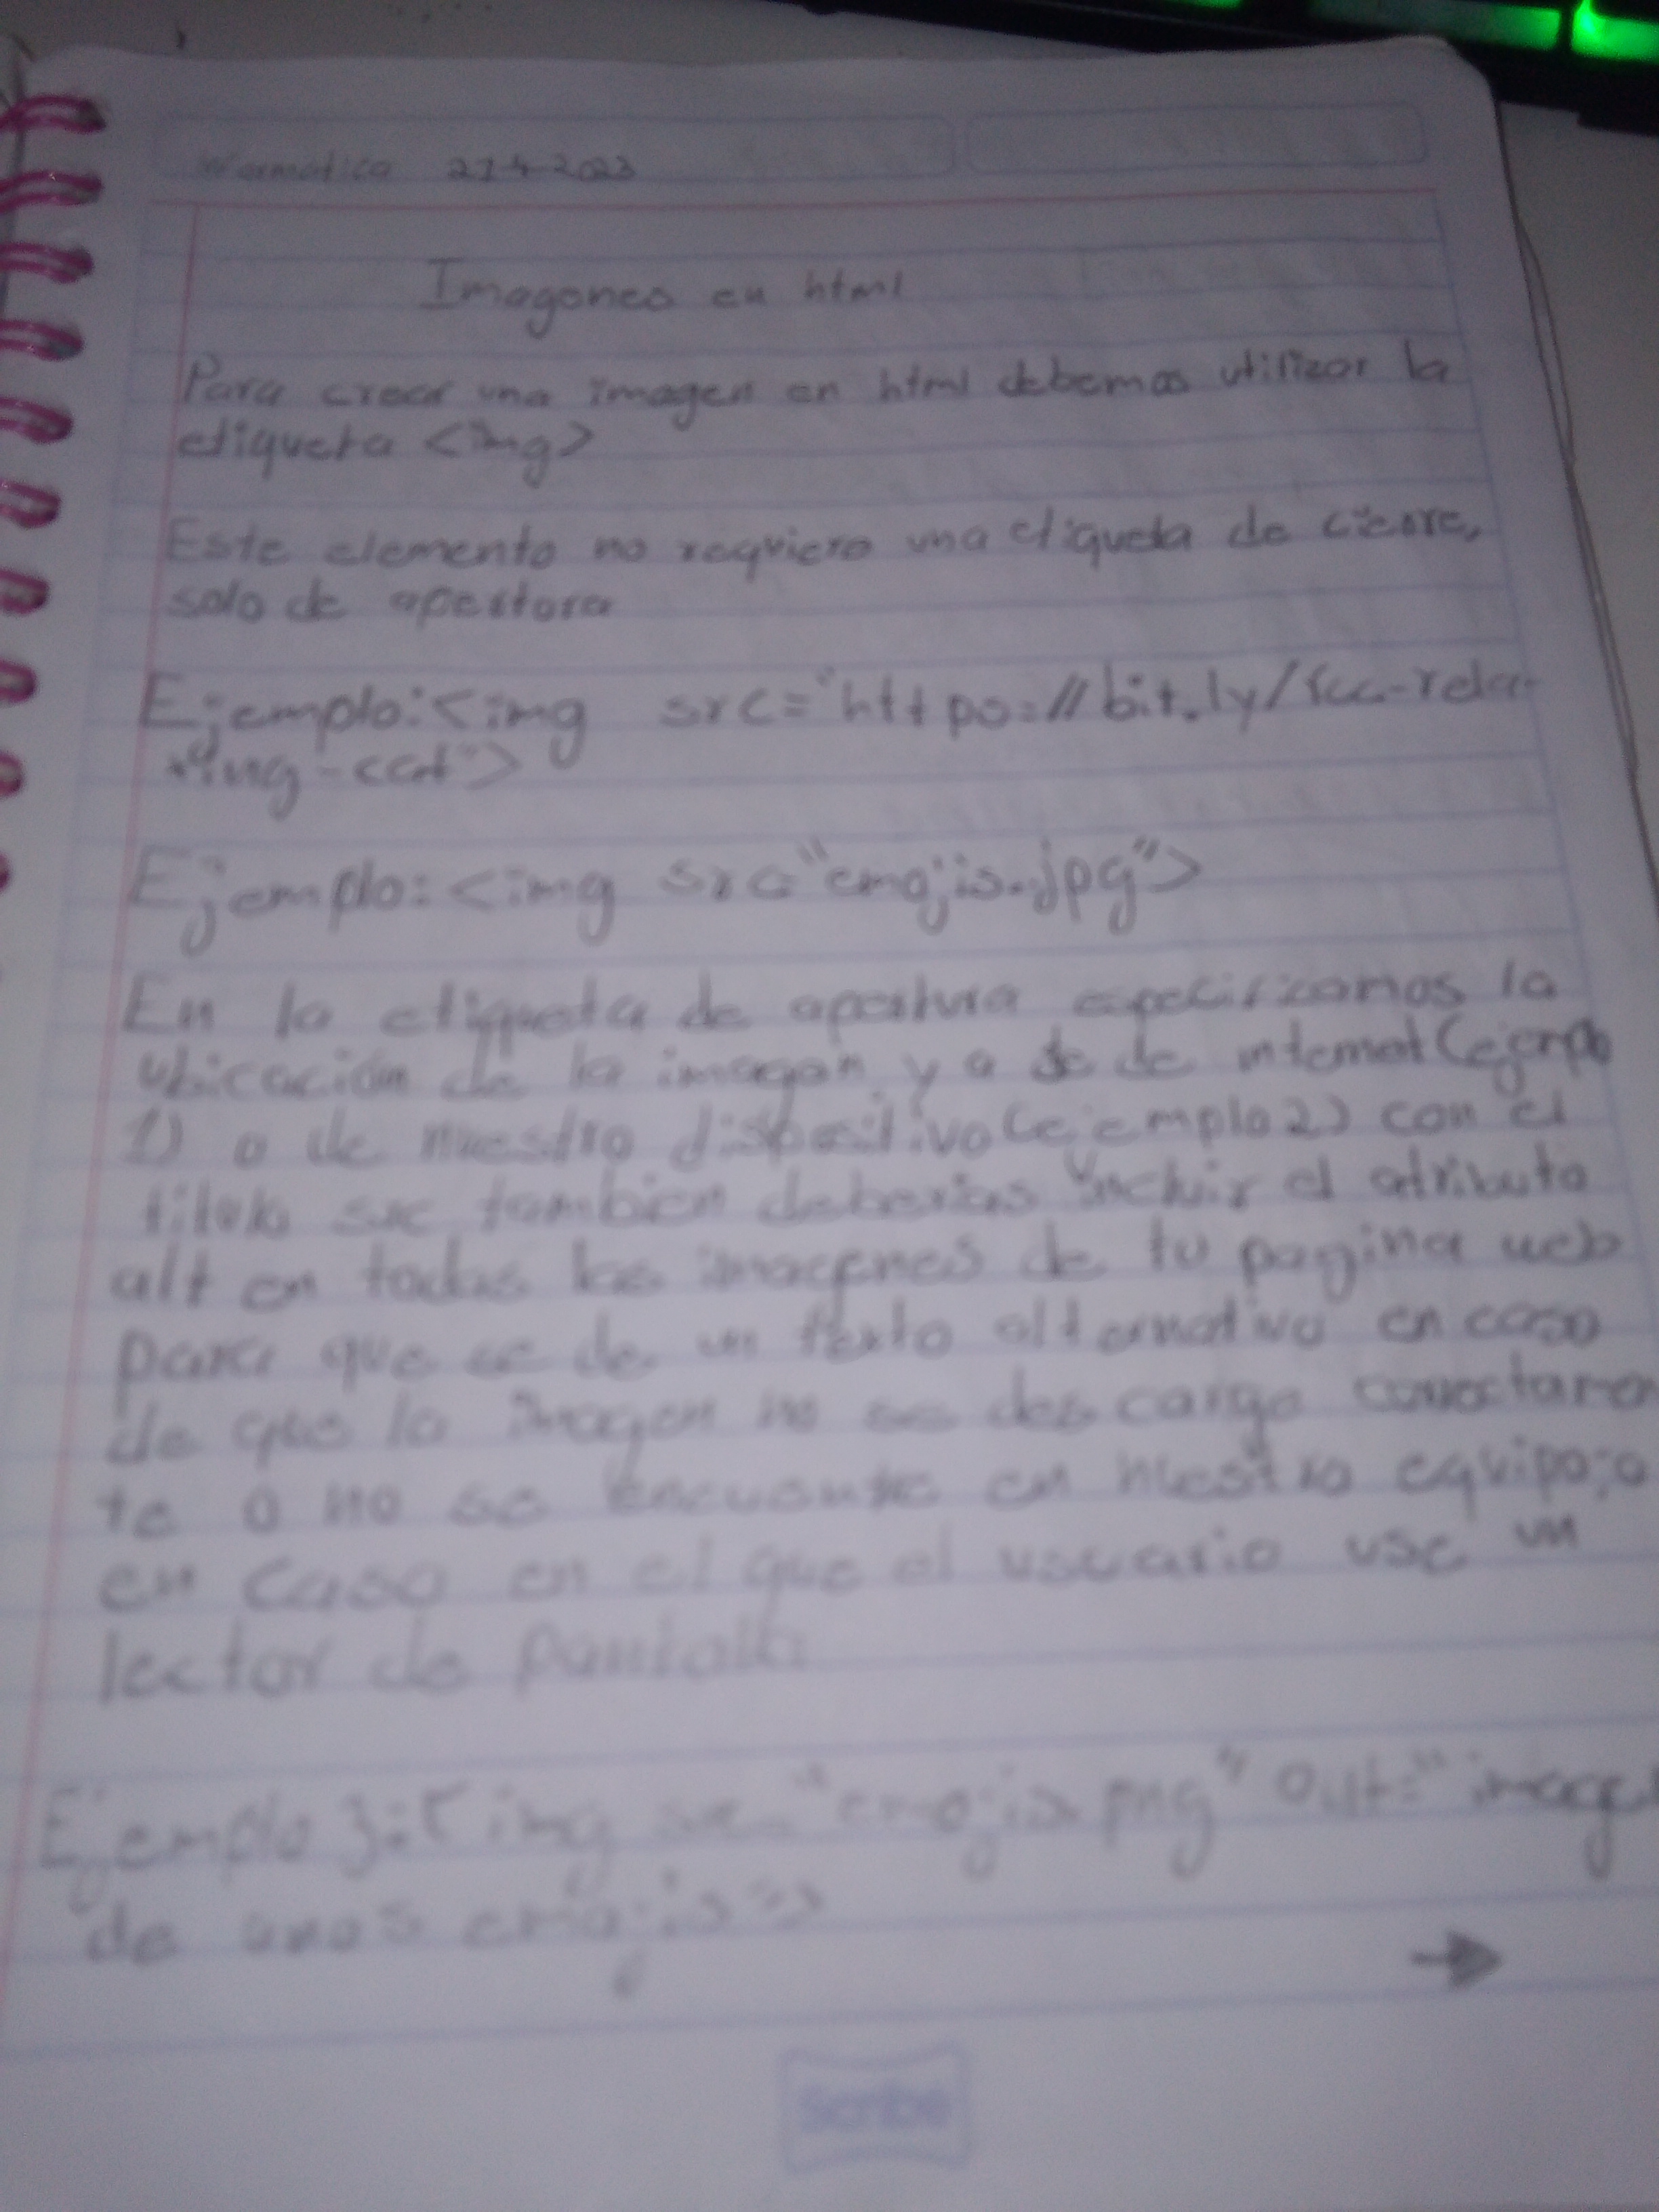 Informatica 27-4-2023
Imagenes en html
Para crear una imagen en html debemos utilizar la
etiqueta <img>
Este elemento no requiere una etiqueta de cierre,
solo de apertura
Ejemplo: <img src="https://bit.ly/fcc-rela-
xing-cat">
Ejemplo: <img src="emojis.jpg">
En la etiqueta de apertura especificamos la
ubicación de la imagen, ya se de internet (ejemplo
1) o de nuestro dispositivo (ejemplo 2) con el
titulo src tambien deberias incluir el atributo
alt en todas las imagenes de tu pagina web
para que se de un texto alternativo en caso
de que la imagen no se descargo
te o no se encuentre en nuestro equipo; o
en caso en el que el usuario use un
lector de pantalla
Ejemplo 3: <img src="emojis.png" alt="imagen
de unos emojis">
Scribe